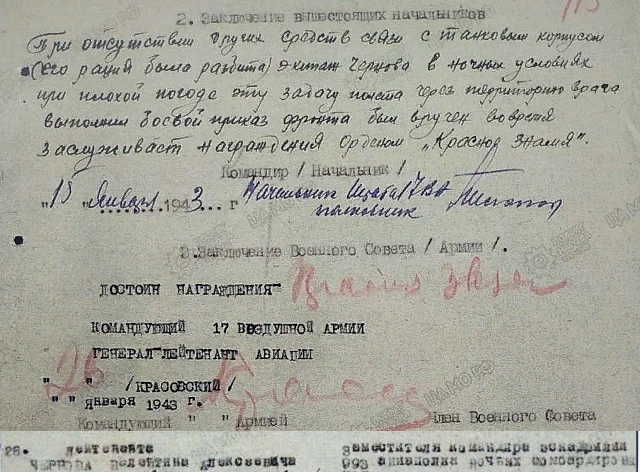 2. Заключение вышестоящих начальников
При отсутствии других средств связи с танковым корпусом
(его рация была разбита) экипаж Чернова в ночных условиях
при плохой погоде эту задачу полета через территорию врага
выполнил боевой приказ фронта был вручен вовремя
заслуживает награждения Орденом „Красное Знамя".
Командир / Начальник /
"15" Января 1943 г Начальник Штаба 17 ВА
полковник
2.Заключение Военного Совета / Армии /.
ДОСТОИН НАГРАЖДЕНИЯ Красная Звезда
КОМАНДУЮЩИЙ 17 ВОЗДУШНОЙ АРМИИ
ГЕНЕРАЛ-ЛЕЙТЕНАНТ АВИАЦИИ
26
" " /КРАСОВСКИЙ/
" " Января 1943 г.
Командующий " " Армией Член Военного Совета
28. лейтенанта Заместителя командира эскадрильи
ЧЕРНОВА Валентина Алексеевича 993 авиаполка ночных